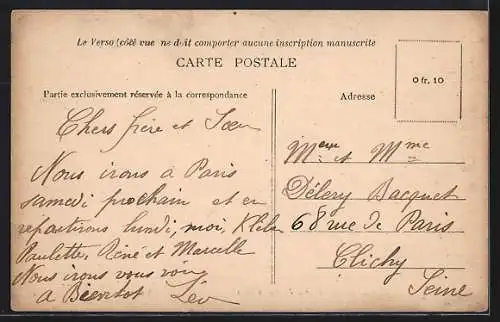 Le Verso (côté vue ne doit comporter aucune inscription manuscrite
CARTE POSTALE
Partie exclusivement réservée à la correspondance
Adresse
0 fr. 10
Chers frère et Sœur
Nous irons à Paris
samedi prochain et en
repartirons lundi, moi,
Paulette, René et Marcelle
Nous irons vous voir
A Bientot Léo
Mr et Mme
Délery Bacquet
68 rue de Paris
Clichy
Seine